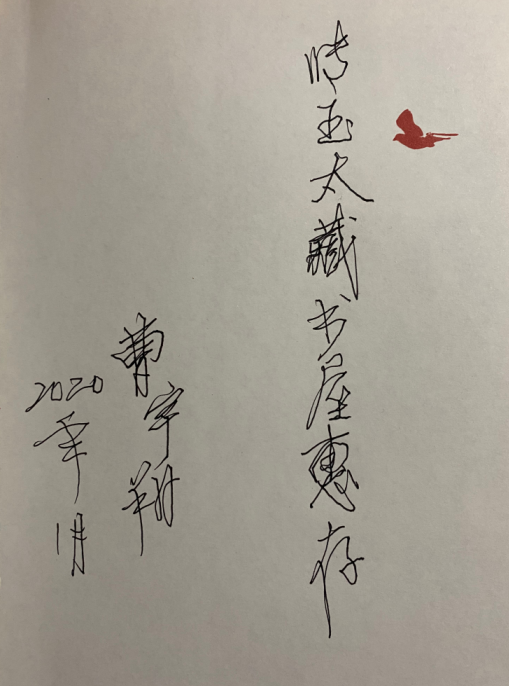 玉太藏书屋惠存
曹宇翔
2020
年1月